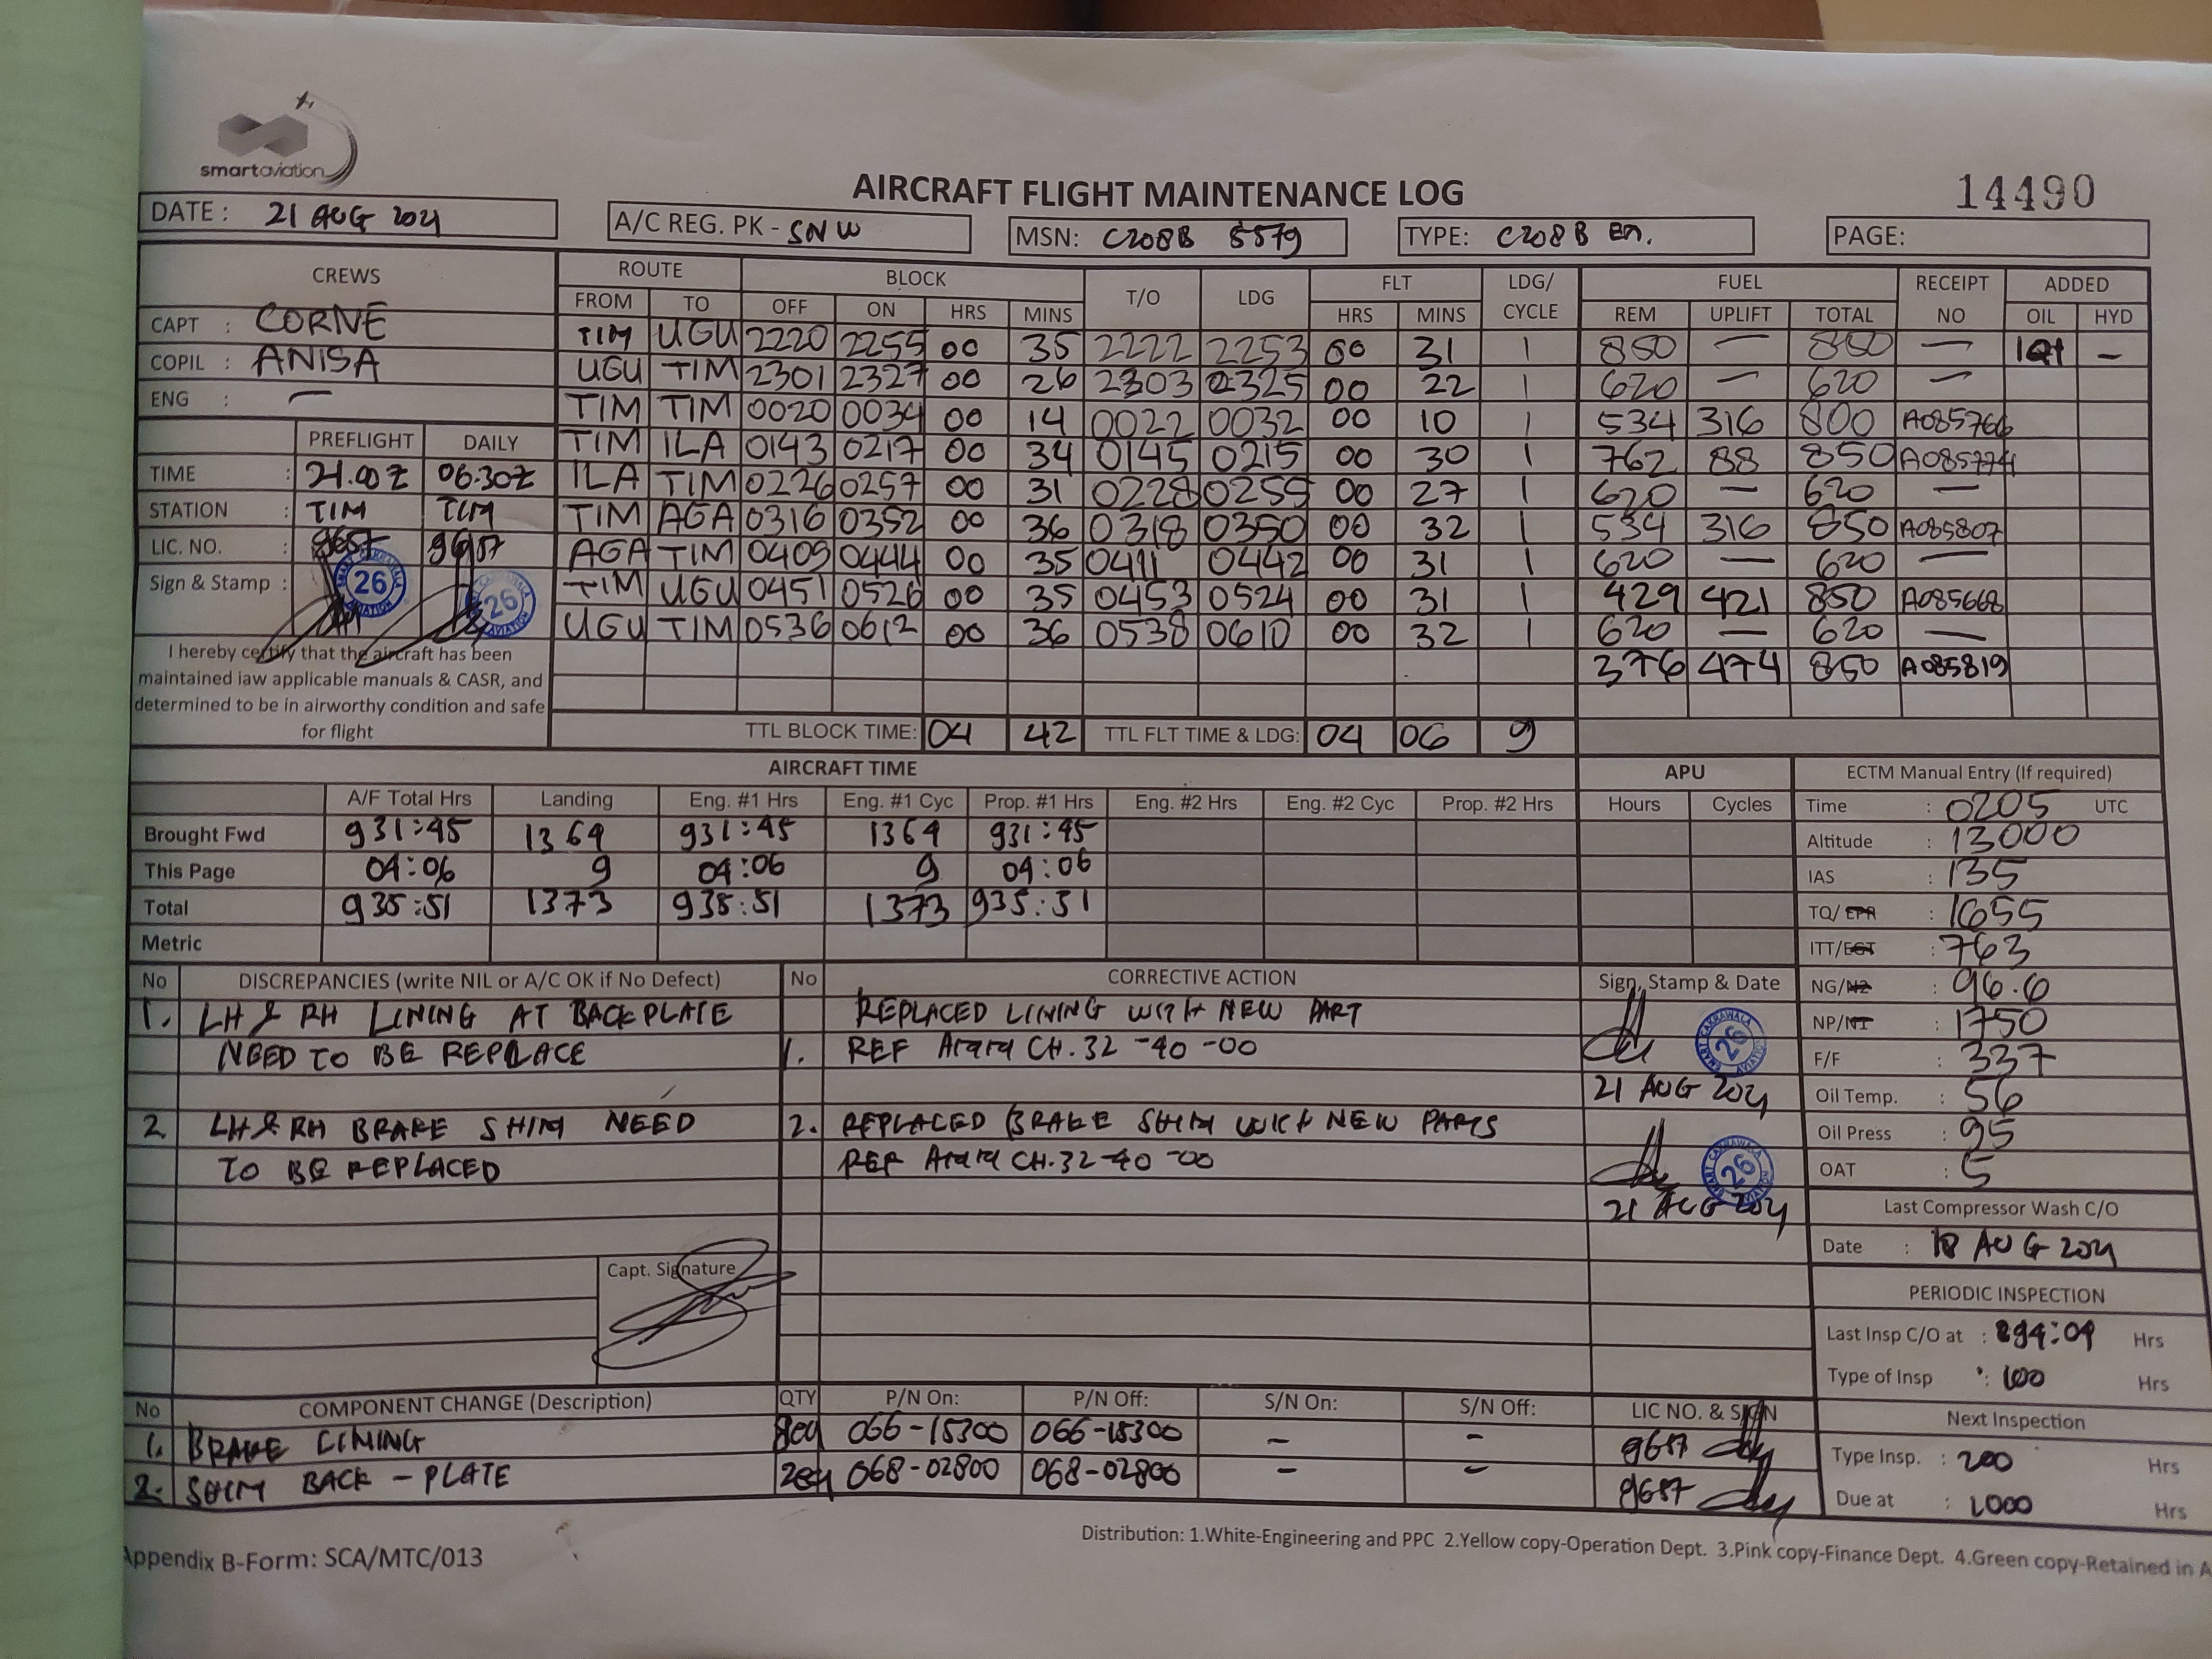 smartaviation
AIRCRAFT FLIGHT MAINTENANCE LOG
14490
DATE : 21 AUG 2021
A/C REG. PK - SNW
MSN: C208B 5579
TYPE: C208B EX.
PAGE:
CREWS
ROUTE BLOCK T/O LDG FLT LDG/ CYCLE FUEL RECEIPT NO ADDED
FROM TO OFF ON HRS MINS HRS MINS REM UPLIFT TOTAL OIL HYD
CAPT : CORNE
COPIL : ANISA
ENG : —
TIM UGU 2220 2255 00 35 2222 2253 00 31 1 850 — 850 — 1Qt –
UGU TIM 2301 2327 00 26 2303 2325 00 22 1 620 — 620 —
TIM TIM 0020 0034 00 14 0022 0032 00 10 1 534 316 800 A085766
TIM ILA 0143 0217 00 34 0145 0215 00 30 1 762 88 850 A085774
ILA TIM 0226 0257 00 31 0228 0255 00 27 1 620 — 620 —
TIM AGA 0316 0352 00 36 0318 0350 00 32 1 534 316 850 A085807
AGA TIM 0409 0444 00 35 0411 0442 00 31 1 620 — 620 —
TIM UGU 0451 0526 00 35 0453 0524 00 31 1 429 421 850 A085668
UGU TIM 0536 0612 00 36 0538 0610 00 32 1 620 — 620 —
376 474 850 A085819
PREFLIGHT DAILY
TIME : 21.00Z 06.30Z
STATION : TIM TIM
LIC. NO. : 9657 9657
Sign & Stamp :
26
26
I hereby certify that the aircraft has been
maintained iaw applicable manuals & CASR, and
determined to be in airworthy condition and safe
for flight
TTL BLOCK TIME: 04 42 TTL FLT TIME & LDG: 04 06 9
AIRCRAFT TIME
A/F Total Hrs Landing Eng. #1 Hrs Eng. #1 Cyc Prop. #1 Hrs Eng. #2 Hrs Eng. #2 Cyc Prop. #2 Hrs
Brought Fwd 931:45 1364 931:45 1364 931:45
This Page 04:06 9 04:06 9 04:06
Total 935:51 1373 935:51 1373 935:51
Metric
APU
Hours Cycles
ECTM Manual Entry (If required)
Time : 0205 UTC
Altitude : 13000
IAS : 135
TQ/EPR : 1655
ITT/EGT : 763
NG/N2 : 96.6
NP/N1 : 1750
F/F : 337
Oil Temp. : 56
Oil Press : 95
OAT : 5
Last Compressor Wash C/O
Date : 18 AUG 2021
PERIODIC INSPECTION
Last Insp C/O at : 894:04 Hrs
Type of Insp : 100 Hrs
Next Inspection
Type Insp. : 200 Hrs
Due at : 1000 Hrs
No DISCREPANCIES (write NIL or A/C OK if No Defect) No CORRECTIVE ACTION Sign, Stamp & Date
1. LH & RH LINING AT BACKPLATE REPLACED LINING WITH NEW PART
NEED TO BE REPLACE 1. REF CH.32-40-00
26
21 AUG 2021
2 LH & RH BRAKE SHIM NEED 2. REPLACED BRAKE SHIM WITH NEW PARTS
TO BE REPLACED REF CH.32-40-00
26
21 AUG 2021
Capt. Signature
No COMPONENT CHANGE (Description) QTY P/N On: P/N Off: S/N On: S/N Off: LIC NO. & SIGN
1. BRAKE LINING 8ea 066-15300 066-15300 – – 9657
2. SHIM BACK-PLATE 2ea 068-02800 068-02800 – – 9657
Distribution: 1.White-Engineering and PPC 2.Yellow copy-Operation Dept. 3.Pink copy-Finance Dept. 4.Green copy-Retained in A
Appendix B-Form: SCA/MTC/013